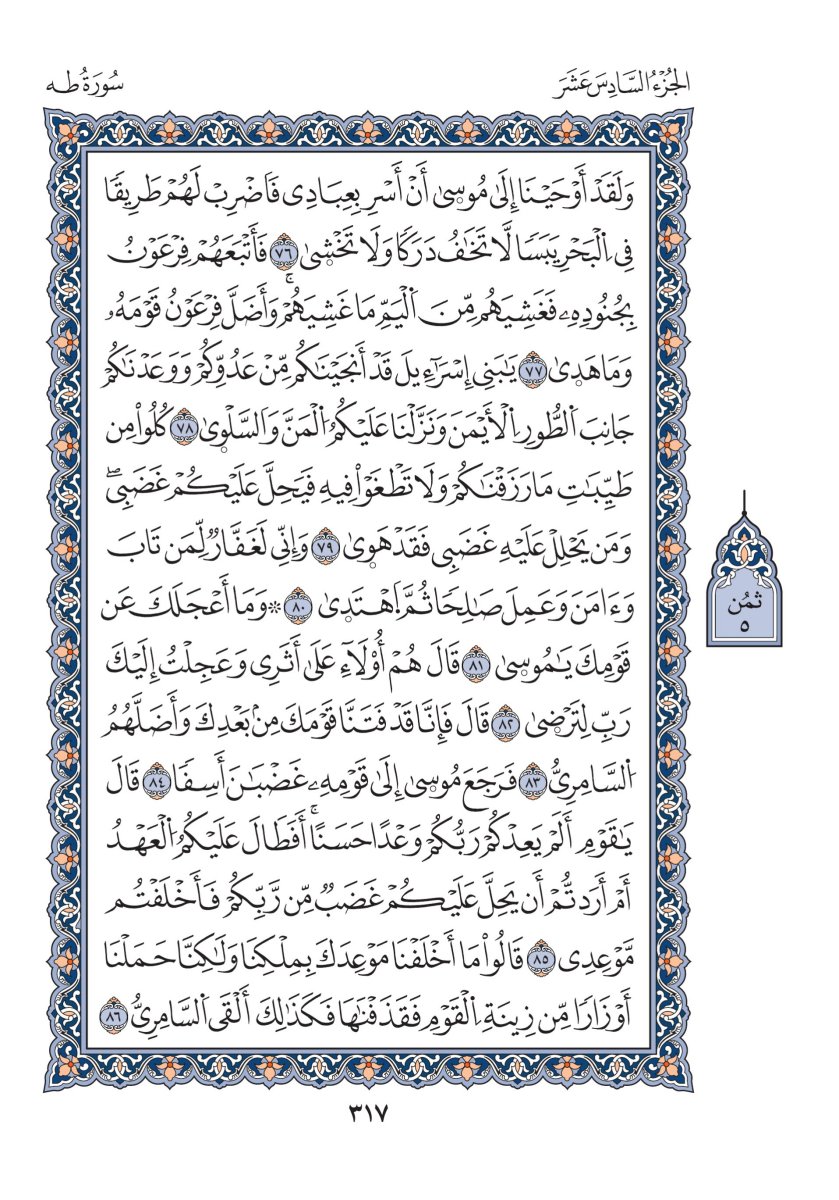 الجُزْءُ السَّادِسَ عَشَرَ
سُورَةُ طه
وَلَقَدْ أَوْحَيْنَا إِلَىٰ مُوسِىٰ أَنْ أَسْرِ بِعِبَادِى فَاَضْرِبْ لَهُمْ طَرِيقًا
فِى اِ۬لْبَحْرِ يَبَسًا لَّا تَخَٰفُ دَرَكًا وَلَا تَخْشِىٰ ٧٦ فَأَتْبَعَهُمْ فِرْعَوْنُ
بِجُنُودِهِۦ فَغَشِيَهُم مِّنَ اَ۬لْيَمِّ مَا غَشِيَهُمْۚ وَأَضَلَّ فِرْعَوْنُ قَوْمَهُۥ
وَمَا هَدِىٰ ٧٧ يَٰبَنِى إِسْرَآءِيلَ قَدْ أَنجَيْنَٰكُم مِّنْ عَدُوِّكُمْ وَوَعَدْنَٰكُمْ
جَانِبَ اَ۬لطُّورِ اِ۬لْأَيْمَنَ وَنَزَّلْنَا عَلَيْكُمُ اُ۬لْمَنَّ وَالسَّلْوِىٰ ٧٨ كُلُواْ مِن
طَيِّبَٰتِ مَا رَزَقْنَٰكُمْ وَلَا تَطْغَوْاْ فِيهِ فَيَحِلَّ عَلَيْكُمْ غَضَبِىۖ
وَمَن يَحْلِلْ عَلَيْهِ غَضَبِى فَقَدْ هَوِىٰ ٧٩ وَإِنِّى لَغَفَّارٌ لِّمَن تَابَ
وَءَامَنَ وَعَمِلَ صَٰلِحًا ثُمَّ اَ۪هْتَدِىٰ ٨٠ ۞ وَمَا أَعْجَلَكَ عَن
قَوْمِكَ يَٰمُوسِىٰ ٨١ قَالَ هُمْ أُوْلَآءِ عَلَىٰ أَثَرِى وَعَجِلْتُ إِلَيْكَ
رَبِّ لِتَرْضِىٰ ٨٢ قَالَ فَإِنَّا قَدْ فَتَنَّا قَوْمَكَ مِنۢ بَعْدِكَ وَأَضَلَّهُمُ
اُ۬لسَّامِرِىُّ ٨٣ فَرَجَعَ مُوسِىٰ إِلَىٰ قَوْمِهِۦ غَضْبَٰنَ أَسِفًا ٨٤ قَالَ
يَٰقَوْمِ أَلَمْ يَعِدْكُمْ رَبُّكُمْ وَعْدًا حَسَنًاۚ أَفَطَالَ عَلَيْكُمُ اُ۬لْعَهْدُ
أَمْ أَرَدتُّمْ أَن يَحِلَّ عَلَيْكُمْ غَضَبٌ مِّن رَّبِّكُمْ فَأَخْلَفْتُم
مَّوْعِدِى ٨٥ قَالُواْ مَا أَخْلَفْنَا مَوْعِدَكَ بِمِلْكِنَا وَلَٰكِنَّا حَمَلْنَا
أَوْزَارًا مِّن زِينَةِ اِ۬لْقَوْمِ فَقَذَفْنَٰهَا فَكَذَٰلِكَ أَلْقَى اَ۬لسَّامِرِىُّ ٨٦
ثُمُن
٥
٣١٧